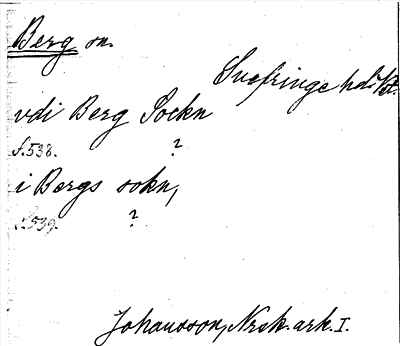 Berg sn.
Svefringe hd Vst.
vdi Berg Sockn
f. 538. ?
i Bergs sokn,
f. 539. ?
Johansson, Nrsk. ark. I.